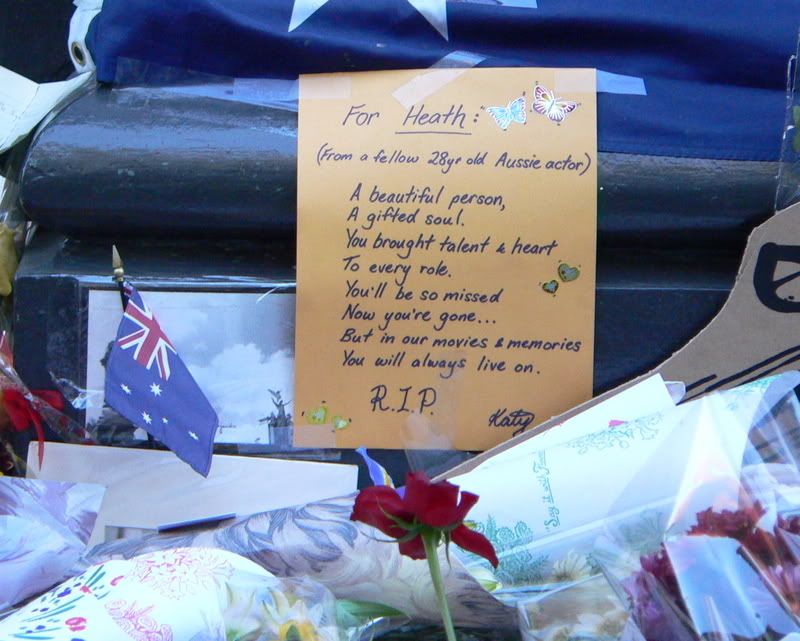 For Heath:
(From a fellow 28yr old Aussie actor)
A beautiful person,
A gifted soul.
You brought talent & heart
To every role.
You'll be so missed
Now you're gone...
But in our movies & memories
You will always live on.
R.I.P.
Katy
"Say it with